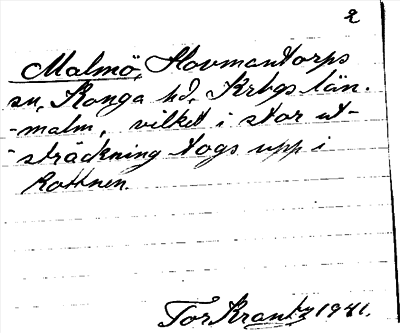 2
Malmö, Hovmantorps
sn, Konga hd, Krbgs län.
-malm, vilket i stor ut-
sträckning togs upp i
Rottnen.
Tor Krantz 1981.